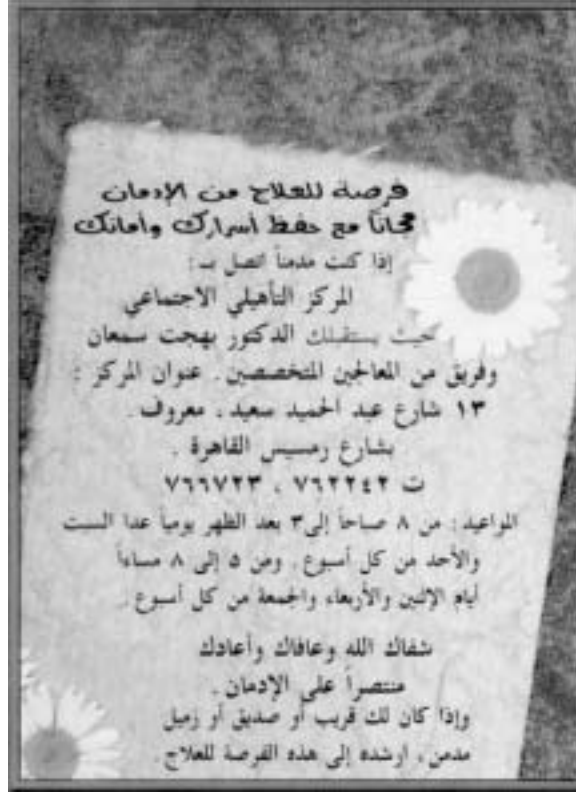 فرصة للعلاج من الإدمان
مجاناً مع حفظ أسرارك وأمانك
إذا كنت مدمناً اتصل بـ :
المركز التأهيلي الاجتماعي
حيث يستقبلك الدكتور بهجت سمعان
وفريق من المعالجين المتخصصين . عنوان المركز :
١٣ شارع عبد الحميد سعيد ، معروف .
بشارع رمسيس القاهرة .
ت ٧٦٢٢٤٢ ، ٧٦٦٧٢٣
المواعيد : من ٨ صباحاً إلى ٣ بعد الظهر يومياً عدا السبت
والأحد من كل أسبوع . ومن ٥ إلى ٨ مساءاً
أيام الإثنين والأربعاء والجمعة من كل أسبوع .
شفاك الله وعافاك وأعادك
منتصراً على الإدمان .
وإذا كان لك قريب أو صديق أو زميل
مدمن ، ارشده إلى هذه الفرصة للعلاج .